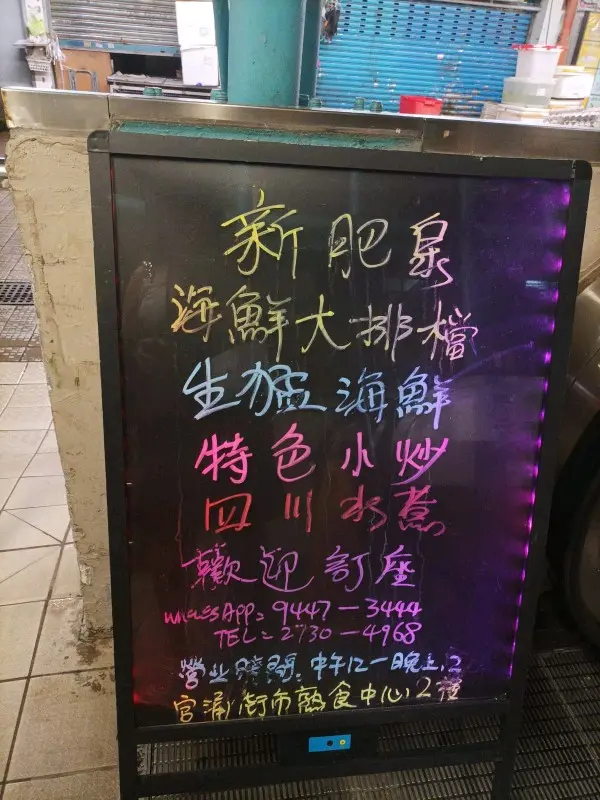 新肥泉
海鮮大排檔
生猛海鮮
特色小炒
四川水煮
歡迎訂座
WhatsApp: 9447-3444
TEL: 2730-4968
營业時間: 中午12-晚上12
官涌街市熟食中心2樓